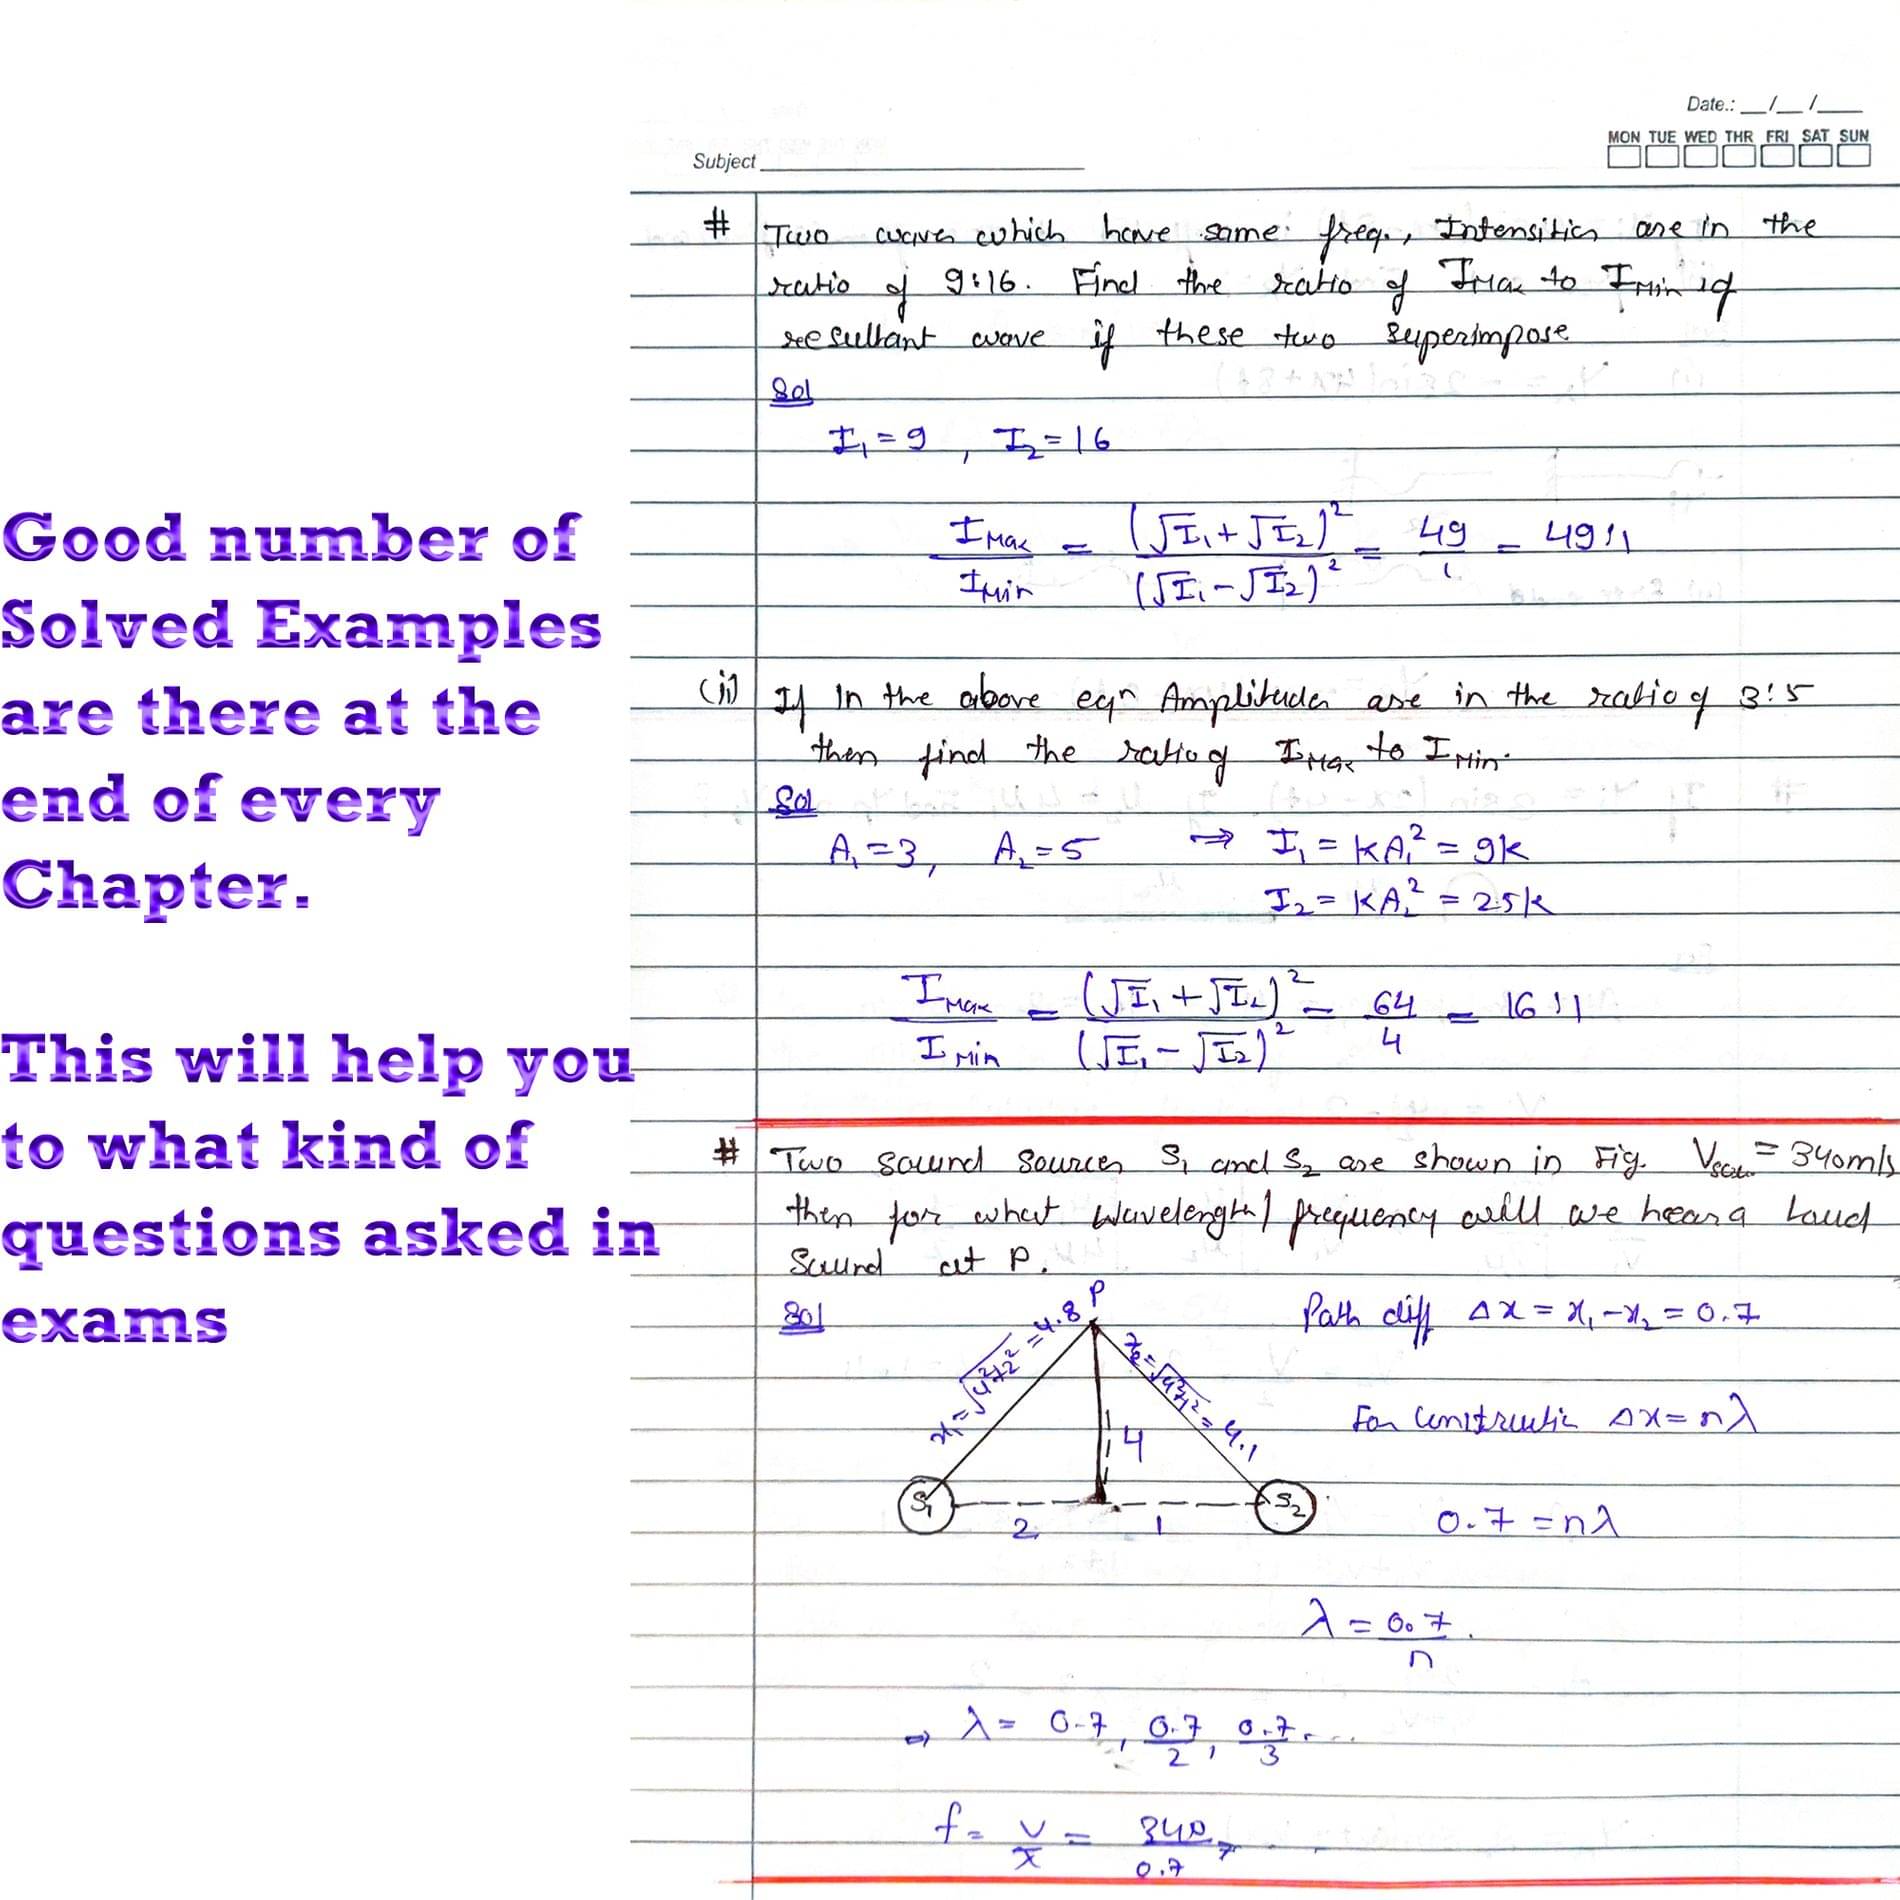 Good number of
Solved Examples
are there at the
end of every
Chapter.
This will help you
to what kind of
questions asked in
exams
Date.: __/__/____
MON TUE WED THR FRI SAT SUN
Subject
# Two waves which have same freq., Intensities are in the
ratio of 9:16. Find the ratio of IMax to IMin of
resultant wave if these two superimpose
Sol
I₁ = 9 , I₂ = 16
IMax/IMin = (√I₁ + √I₂)²/(√I₁ - √I₂)² = 49/1 = 49:1
(ii) If in the above eqⁿ Amplitudes are in the ratio of 3:5
then find the ratio of IMax to IMin.
Sol
A₁ = 3, A₂ = 5 ⇒ I₁ = kA₁² = 9k
I₂ = kA₂² = 25k
IMax/IMin = (√I₁ + √I₂)²/(√I₁ - √I₂)² = 64/4 = 16:1
# Two sound sources S₁ and S₂ are shown in Fig. = 340m/s
then for what wavelength/frequency will we hear a Loud
Sound at P.
Sol
P
x₁ = √4²+2² = 4.8
x₂ = √4²+1² = 4.1
Path diff Δx = x₁ - x₂ = 0.7
For constructive Δx = nλ
4
S₁
S₂
2
1
0.7 = nλ
λ = 0.7/n
⇒ λ = 0.7, 0.7/2, 0.7/3 ....
f = v/λ = 340/0.7,